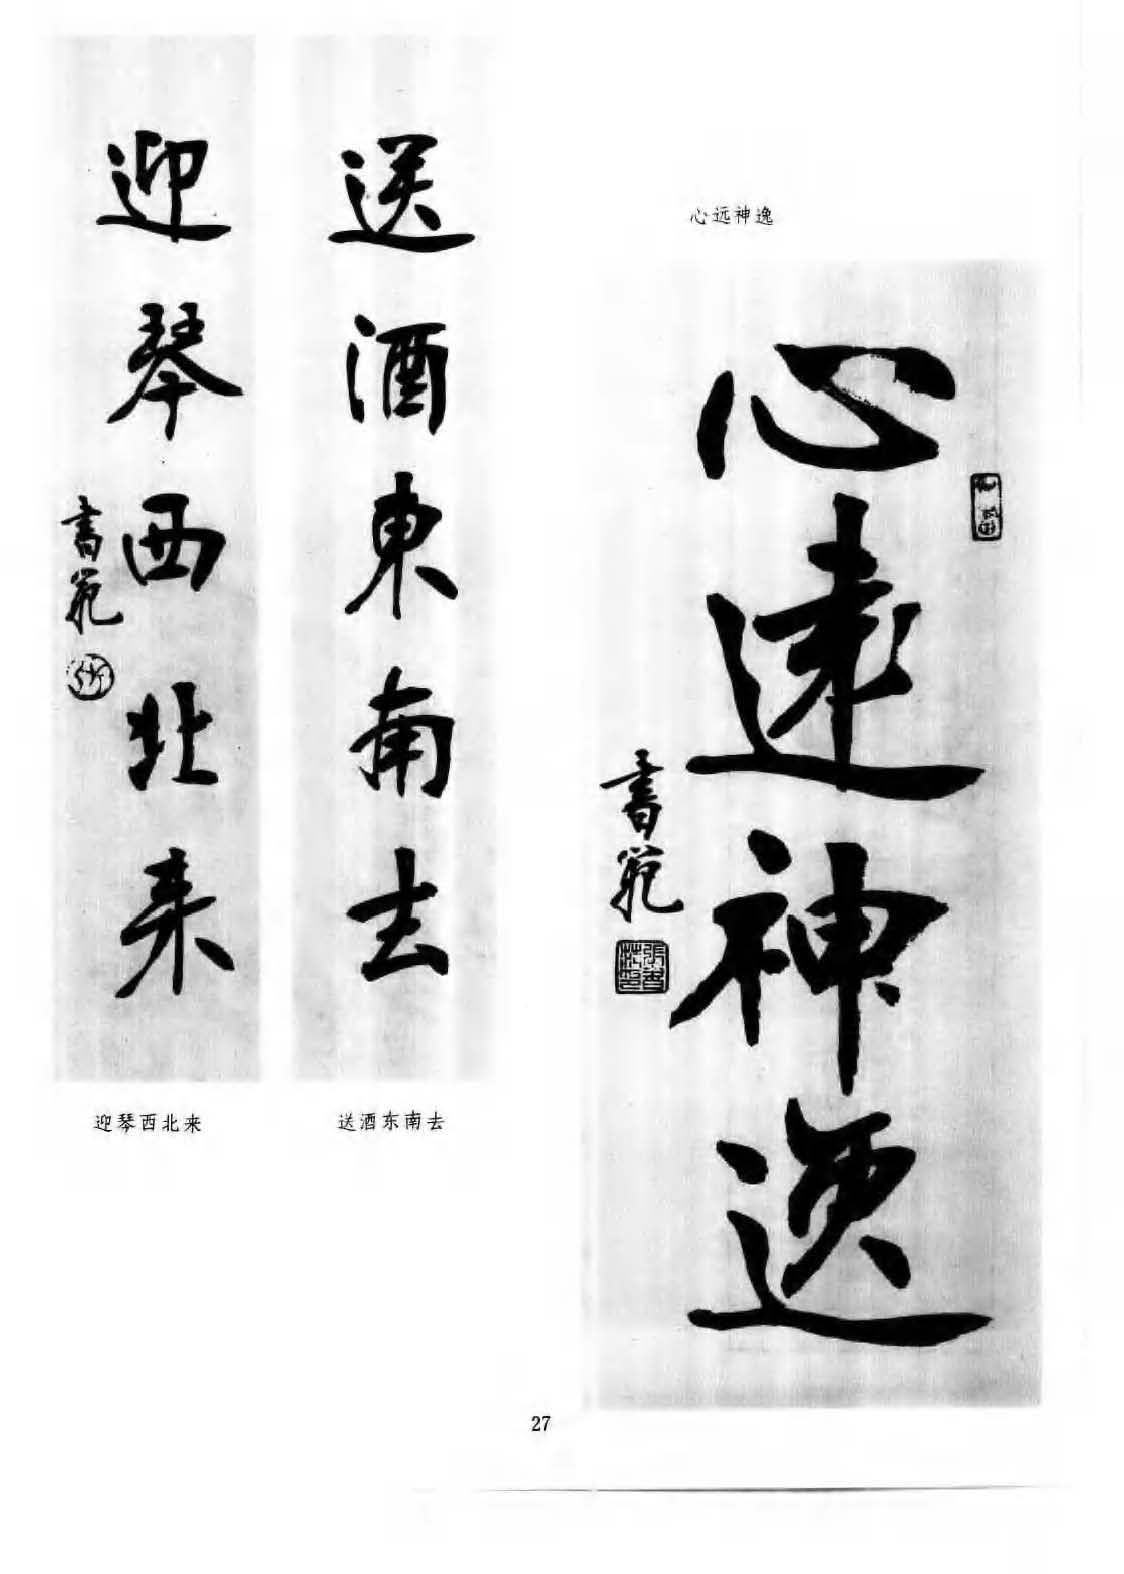 心远神逸
心遠神逸
書範
送酒東南去
迎琴西北来
書範
送酒东南去
迎琴西北来
27